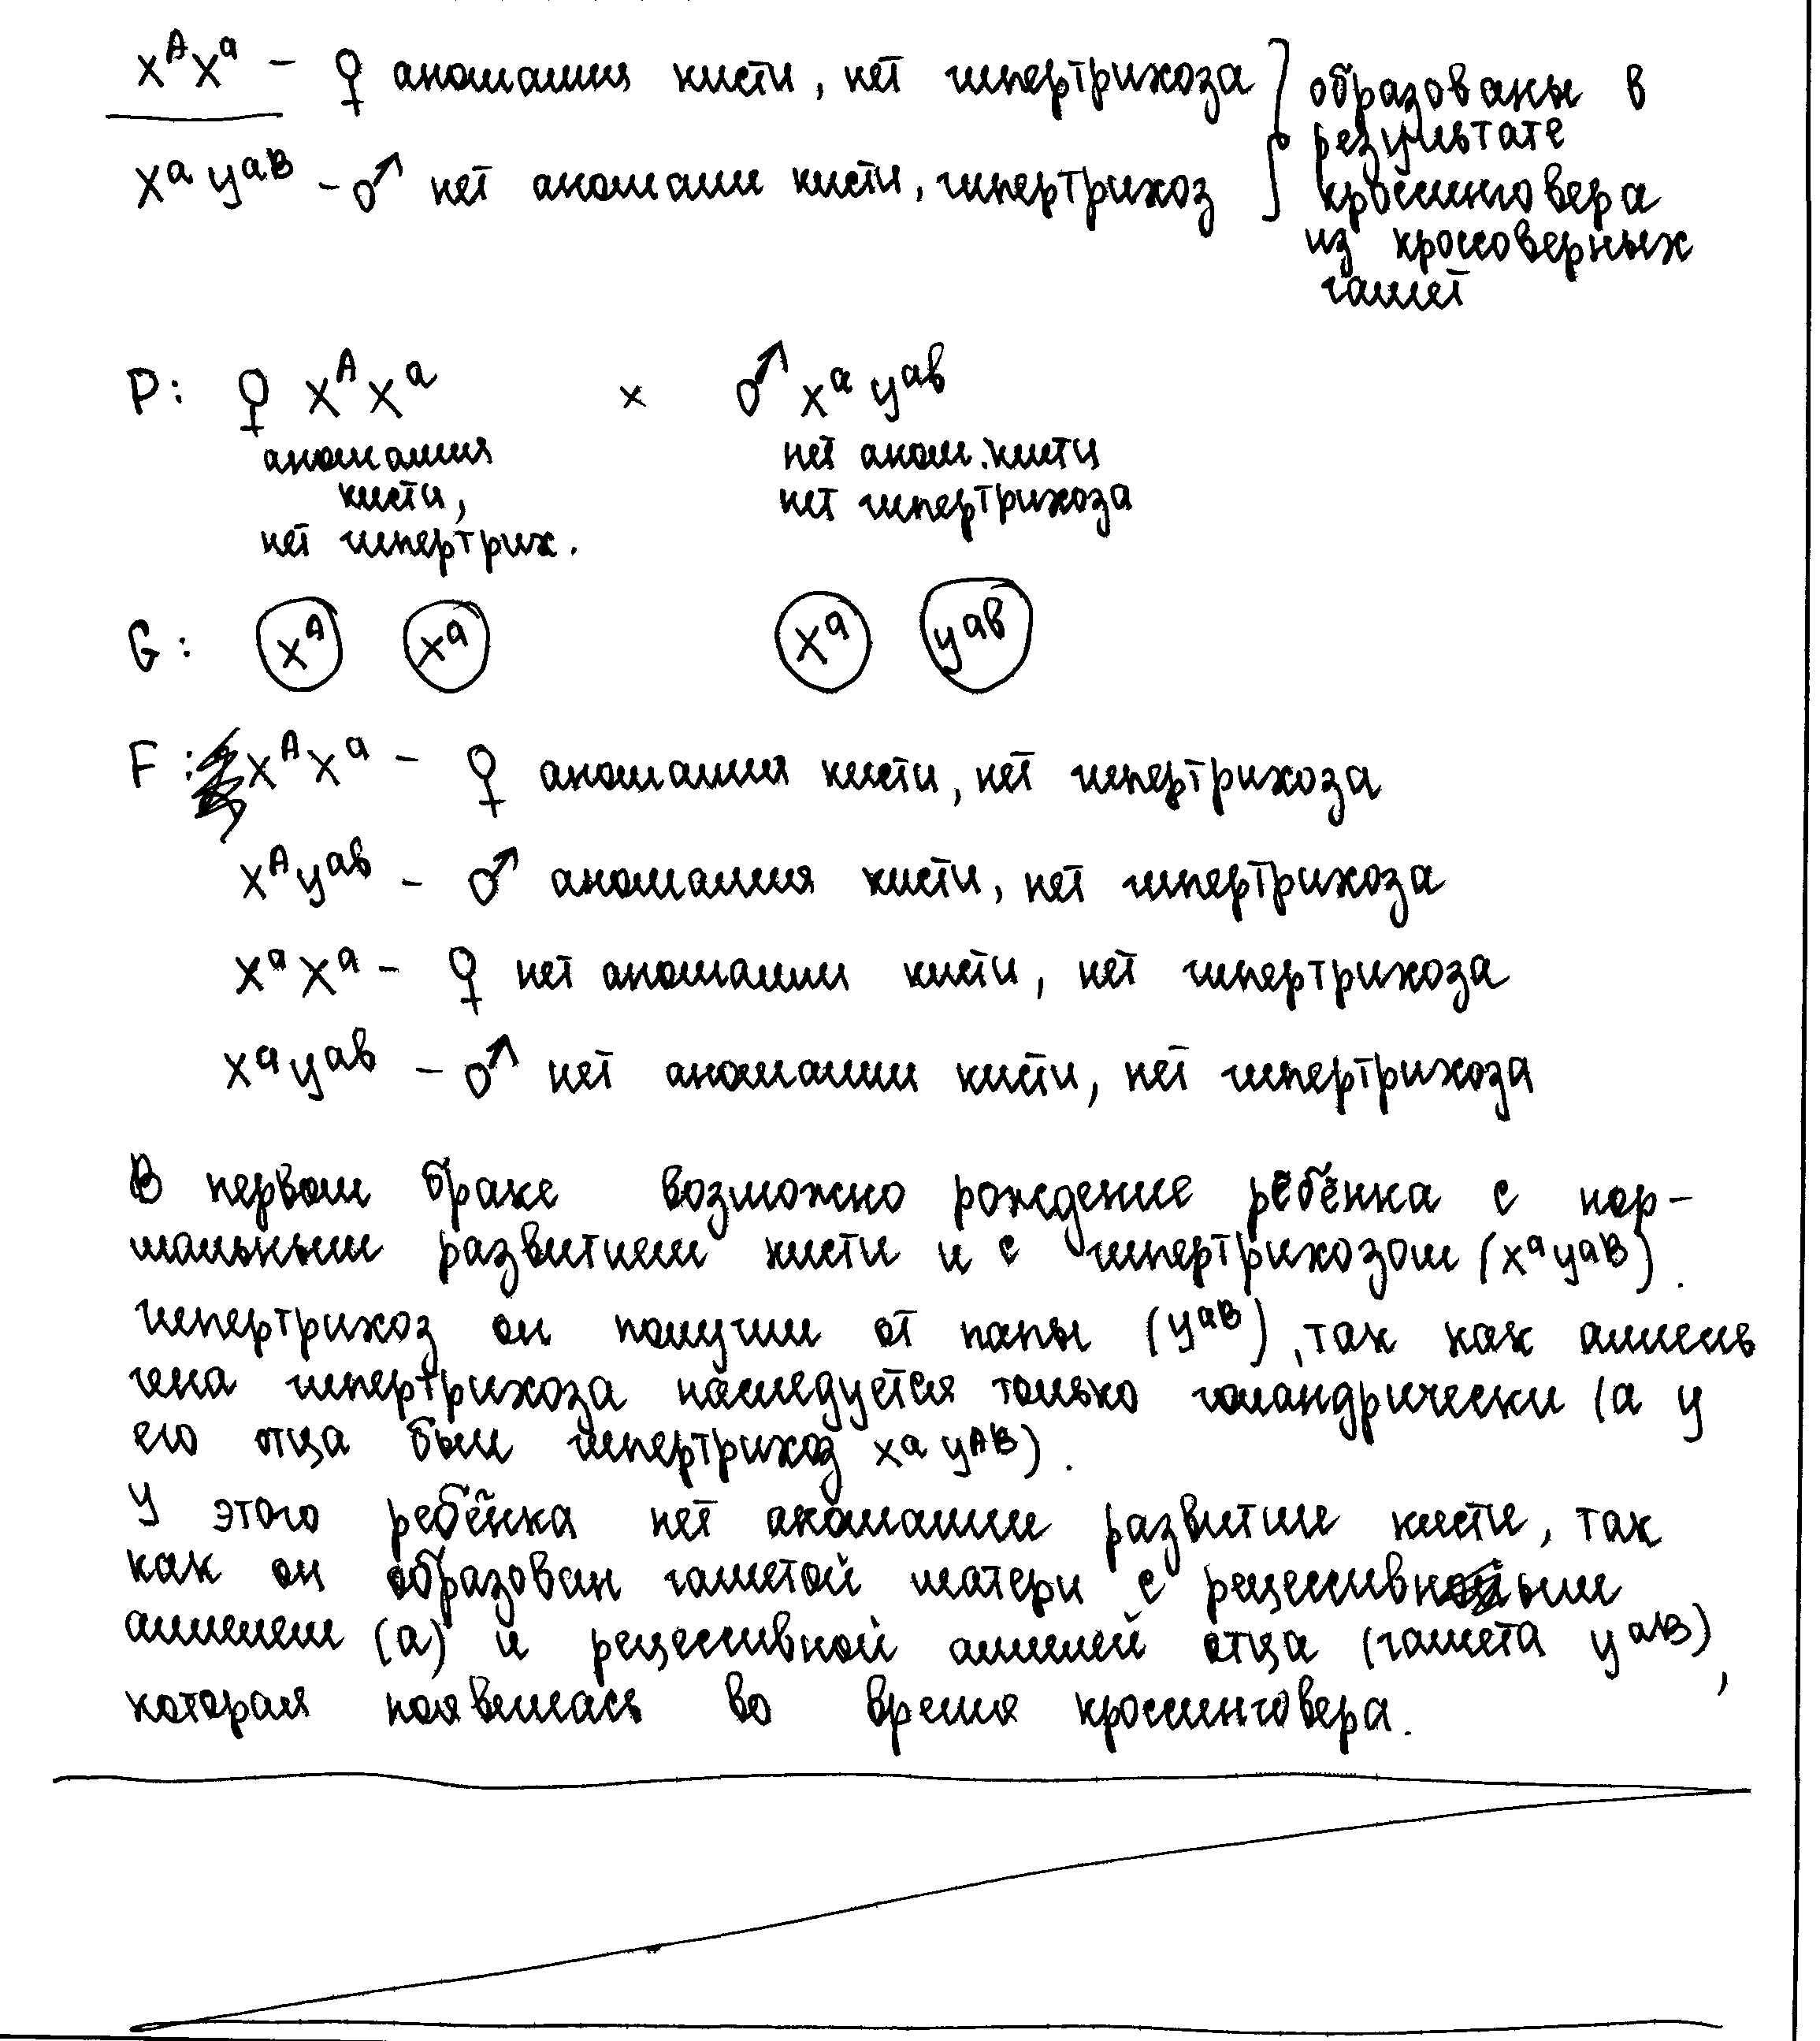 X^A X^a – ♀ аномалия кисти, нет гипертрихоза } образованы в
результате
X^a Y^aB – ♂ нет аномалии кисти, гипертрихоз кроссинговера
из кроссоверных
гамет
P: ♀ X^A X^a × ♂ X^a Y^ab
аномалия нет аном. кисти
кисти, нет гипертрихоза
нет гипертрих.
G: X^A X^a X^a Y^ab
F: X^A X^a – ♀ аномалия кисти, нет гипертрихоза
X^A Y^ab – ♂ аномалия кисти, нет гипертрихоза
X^a X^a – ♀ нет аномалии кисти, нет гипертрихоза
X^a Y^ab – ♂ нет аномалии кисти, нет гипертрихоза
В первом браке возможно рождение ребёнка с нор-
мальным развитием кисти и с гипертрихозом (X^a Y^aB).
гипертрихоз он получил от папы (Y^aB), так как аллель
гена гипертрихоза наследуется только голандрически (а у
его отца был гипертрихоз X^a Y^AB).
У этого ребёнка нет аномалии развитие кисти, так
как он образован гаметой матери с рецессивным
аллелем (a) и рецессивной аллелей отца (гамета Y^aB),
которая появилась во время кроссинговера.